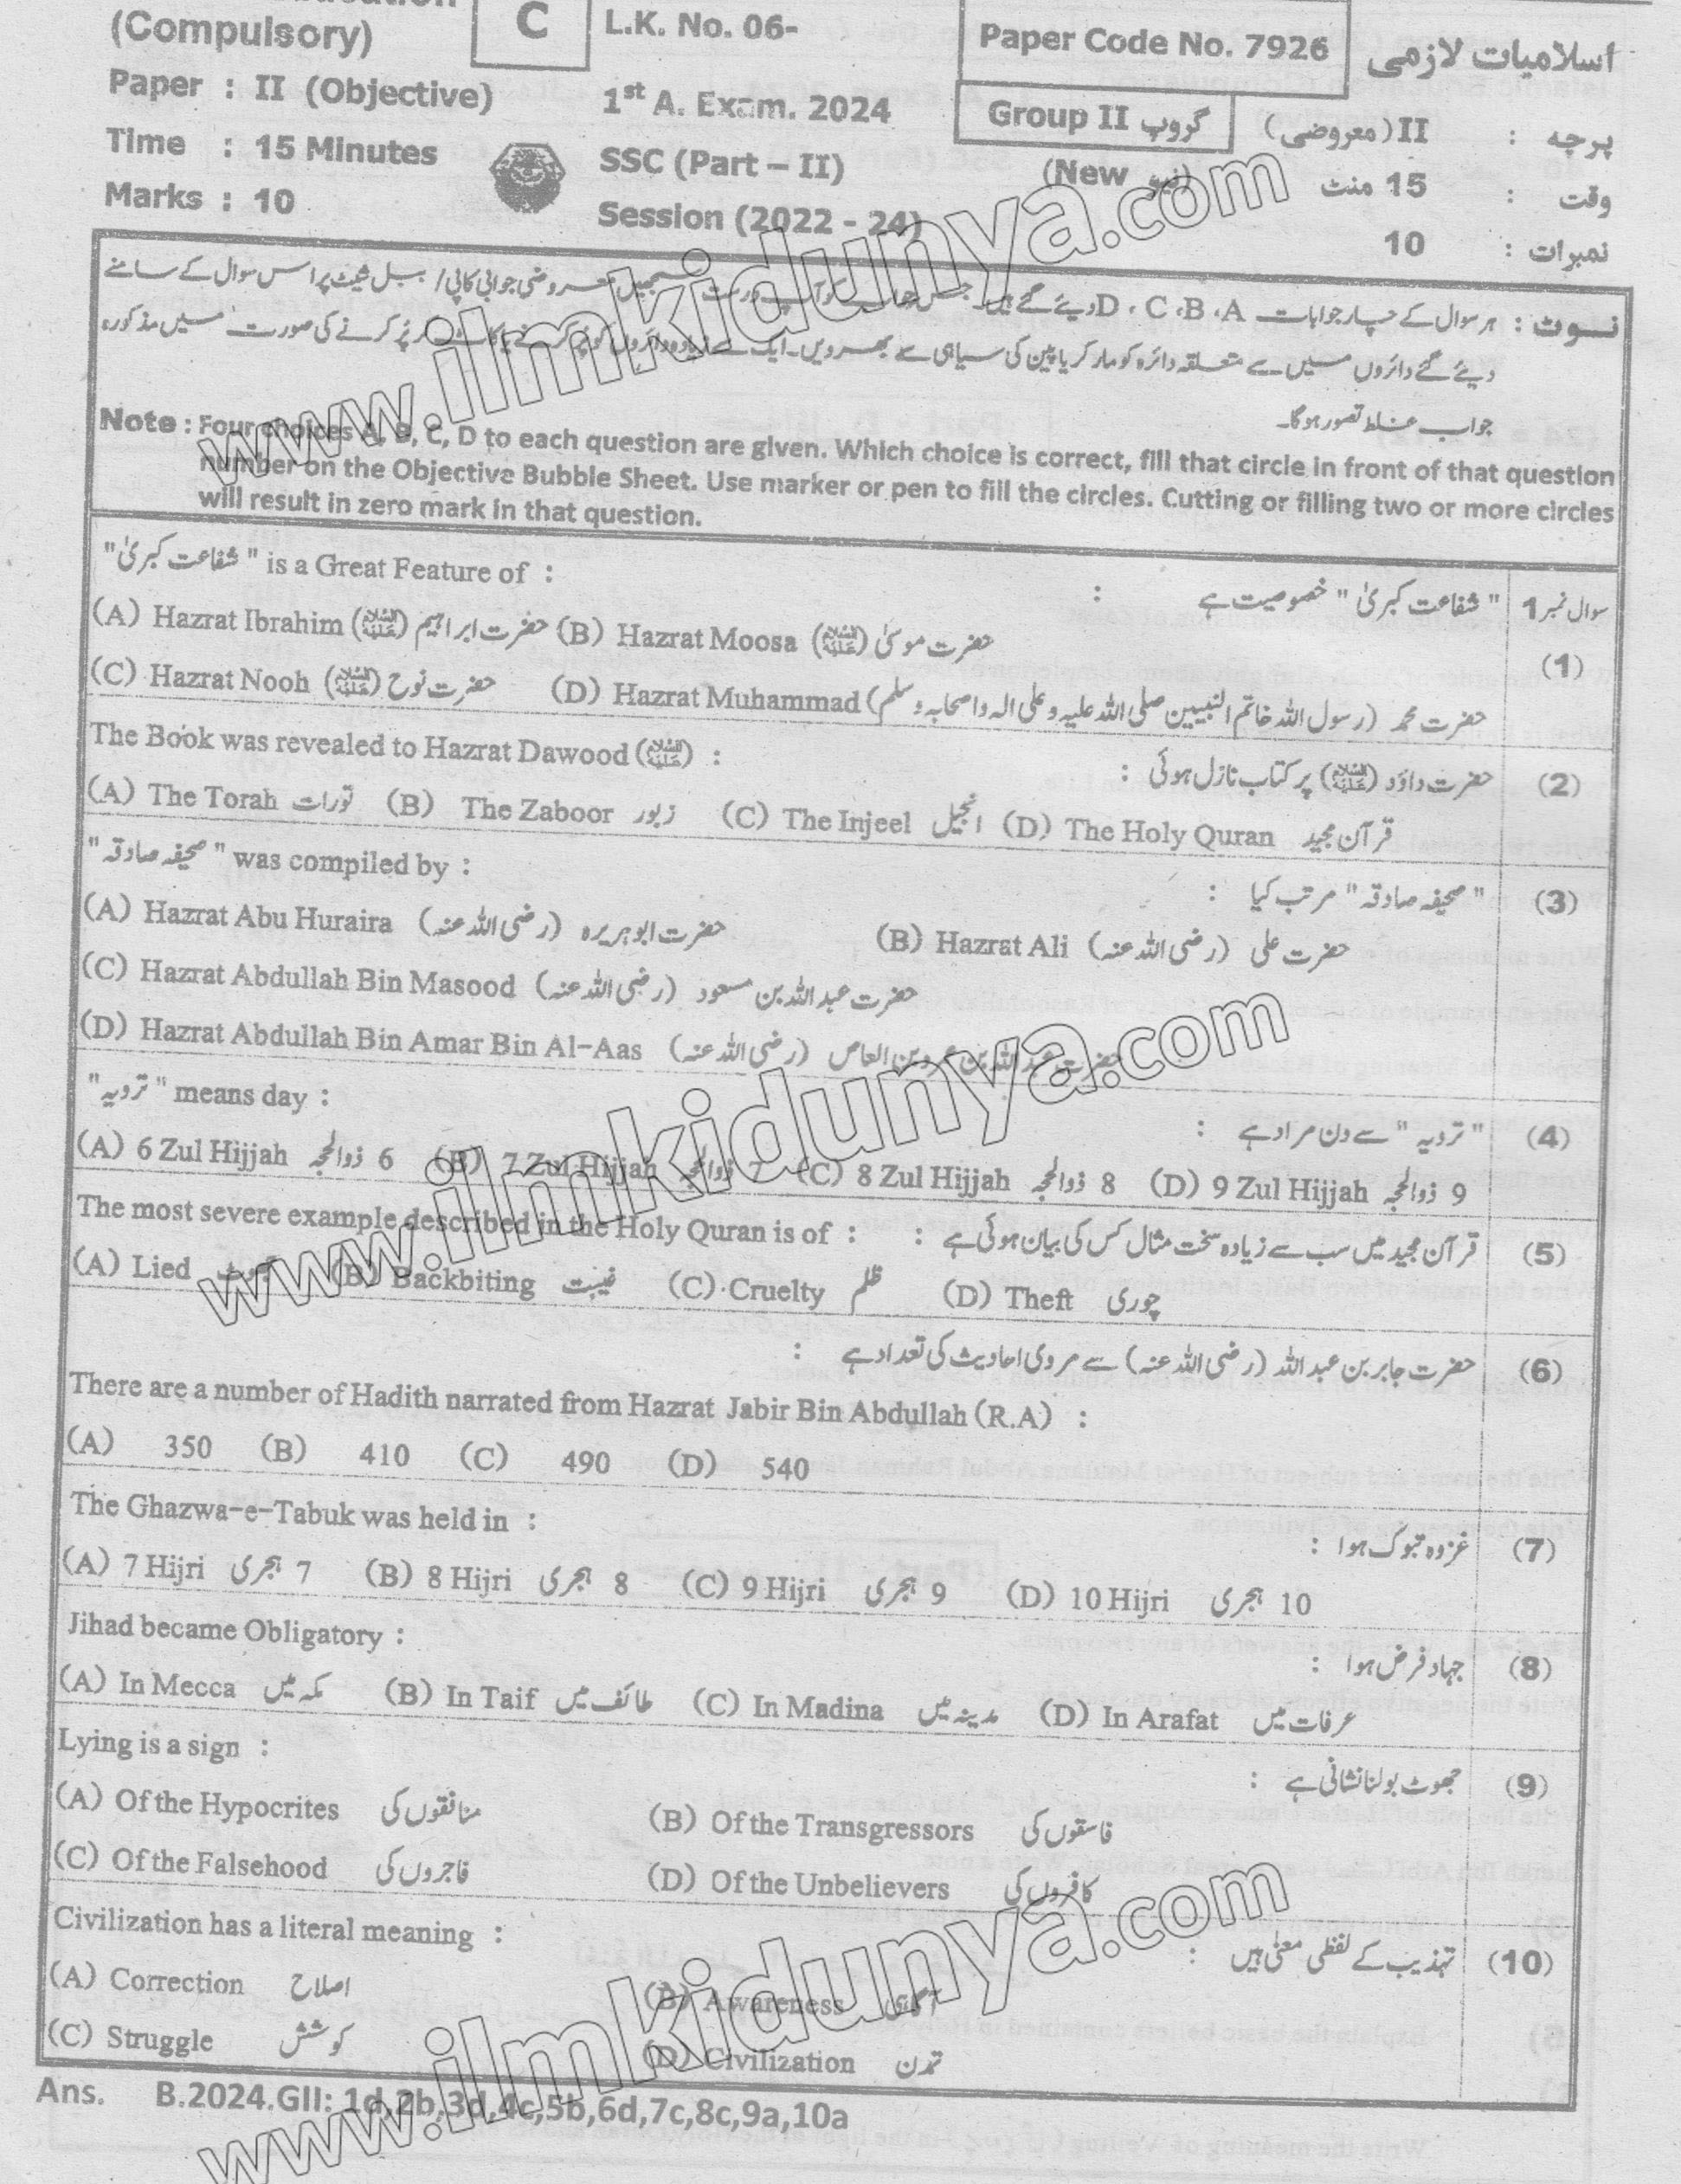 (Compulsory)
C
L.K. No. 06-
Paper Code No. 7926
اسلامیات لازمی
Paper : II (Objective)
1st A. Exam. 2024
Group II گروپ
پرچہ : II (معروضی)
Time : 15 Minutes
SSC (Part – II)
(New نیو)
وقت : 15 منٹ
Marks : 10
Session (2022 - 24)
نمبرات : 10
نوٹ : ہر سوال کے چار جوابات D ، C ،B ،A دیئے گئے ہیں۔ جس جواب کو آپ درست سمجھیں معروضی جوابی کاپی / ببل شیٹ پر اس سوال کے سامنے
دیئے گئے دائروں میں سے متعلقہ دائرہ کو مارکر یا پین کی سیاہی سے بھر دیں۔ ایک سے زیادہ دائروں کو پُر کرنے یا کاٹ کر پُر کرنے کی صورت میں مذکورہ
جواب غلط تصور ہوگا۔
Note : Four choices A, B, C, D to each question are given. Which choice is correct, fill that circle in front of that question
number on the Objective Bubble Sheet. Use marker or pen to fill the circles. Cutting or filling two or more circles
will result in zero mark in that question.
"شفاعت کبریٰ" is a Great Feature of :
سوال نمبر 1 "شفاعت کبریٰ" خصوصیت ہے :
(A) Hazrat Ibrahim (علیہ السلام) حضرت ابراہیم (B) Hazrat Moosa (علیہ السلام) حضرت موسیٰ
(1)
(C) Hazrat Nooh (علیہ السلام) حضرت نوح (D) Hazrat Muhammad حضرت محمد (رسول اللہ خاتم النبیین صلی اللہ علیہ وعلی الہ واصحابہ وسلم)
The Book was revealed to Hazrat Dawood (علیہ السلام) :
(2) حضرت داؤد (علیہ السلام) پر کتاب نازل ہوئی :
(A) The Torah تورات (B) The Zaboor زبور (C) The Injeel انجیل (D) The Holy Quran قرآن مجید
"صحیفہ صادقہ" was compiled by :
(3) "صحیفہ صادقہ" مرتب کیا :
(A) Hazrat Abu Huraira حضرت ابوہریرہ (رضی اللہ عنہ) (B) Hazrat Ali حضرت علی (رضی اللہ عنہ)
(C) Hazrat Abdullah Bin Masood حضرت عبداللہ بن مسعود (رضی اللہ عنہ)
(D) Hazrat Abdullah Bin Amar Bin Al-Aas حضرت عبداللہ بن عمرو بن العاص (رضی اللہ عنہ)
"ترویہ" means day :
(4) "ترویہ" سے دن مراد ہے :
(A) 6 Zul Hijjah 6 ذوالحجہ (B) 7 Zul Hijjah 7 ذوالحجہ (C) 8 Zul Hijjah 8 ذوالحجہ (D) 9 Zul Hijjah 9 ذوالحجہ
The most severe example described in the Holy Quran is of :
(5) قرآن مجید میں سب سے زیادہ سخت مثال کس کی بیان ہوئی ہے :
(A) Lied جھوٹ (B) Backbiting غیبت (C) Cruelty ظلم (D) Theft چوری
(6) حضرت جابر بن عبداللہ (رضی اللہ عنہ) سے مروی احادیث کی تعداد ہے :
There are a number of Hadith narrated from Hazrat Jabir Bin Abdullah (R.A) :
(A) 350 (B) 410 (C) 490 (D) 540
The Ghazwa-e-Tabuk was held in :
(7) غزوہ تبوک ہوا :
(A) 7 Hijri 7 ہجری (B) 8 Hijri 8 ہجری (C) 9 Hijri 9 ہجری (D) 10 Hijri 10 ہجری
Jihad became Obligatory :
(8) جہاد فرض ہوا :
(A) In Mecca مکہ میں (B) In Taif طائف میں (C) In Madina مدینہ میں (D) In Arafat عرفات میں
Lying is a sign :
(9) جھوٹ بولنا نشانی ہے :
(A) Of the Hypocrites منافقوں کی (B) Of the Transgressors فاسقوں کی
(C) Of the Falsehood فاجروں کی (D) Of the Unbelievers کافروں کی
Civilization has a literal meaning :
(10) تہذیب کے لفظی معنیٰ ہیں :
(A) Correction اصلاح (B) Awareness آگاہی
(C) Struggle کوشش (D) Civilization تمدن
Ans. B.2024.GII: 1d,2b,3d,4c,5b,6d,7c,8c,9a,10a
www.ilmkidunya.com
www.ilmkidunya.com
www.ilmkidunya.com